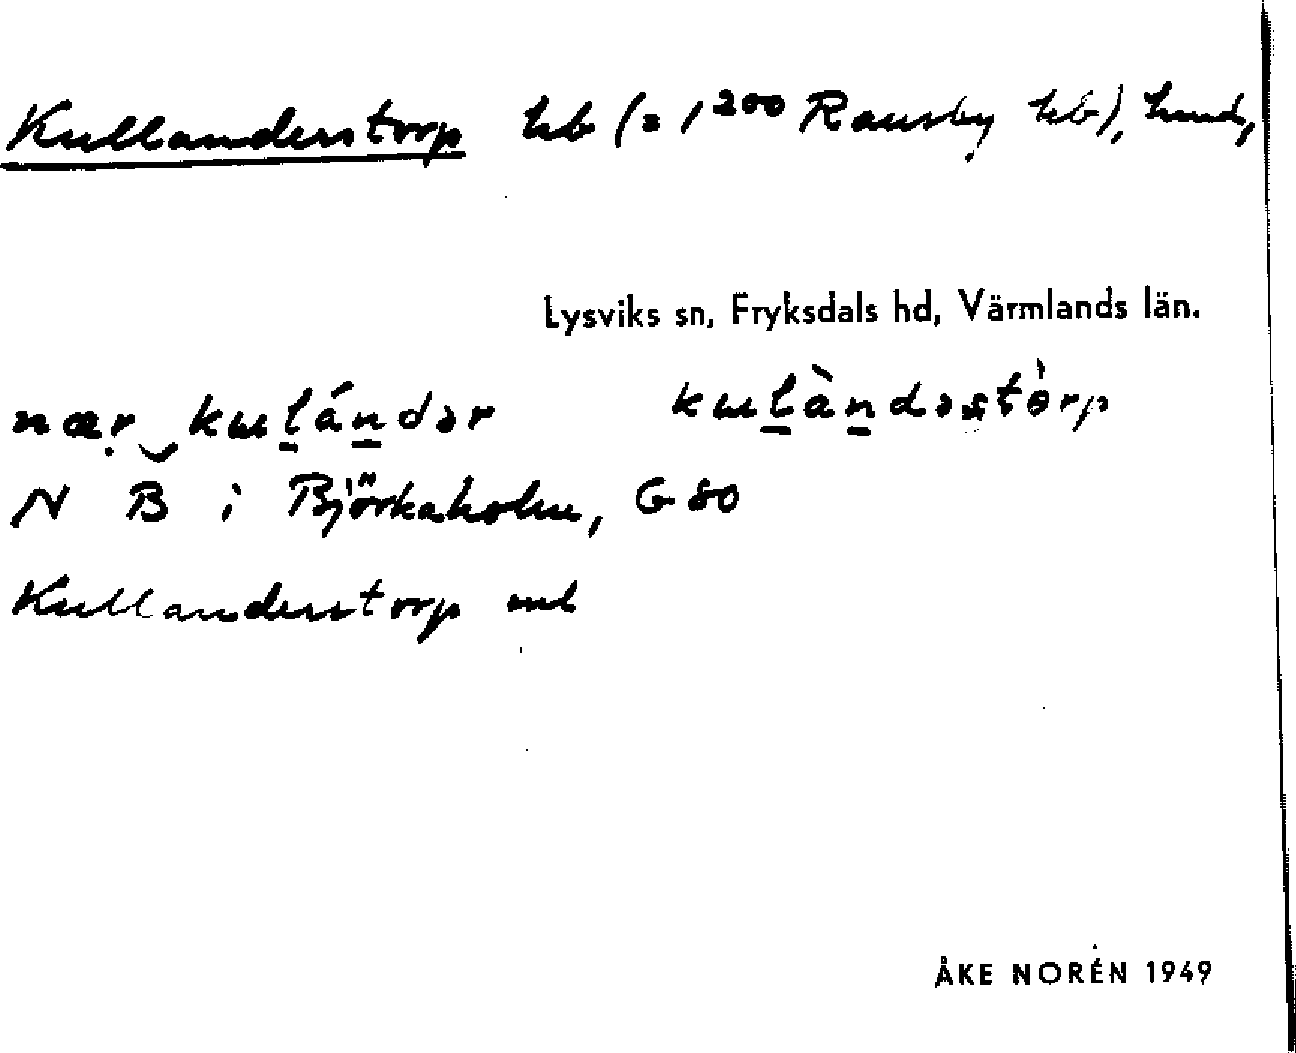 Kullanderstorp hb (= 1²⁰⁰ Ransby hb), hmd,
Lysviks sn, Fryksdals hd, Värmlands län.
nær kuḻáṉdər kuḻàṉdəstòrp
N B i Björkaholm, G 80
Kullanderstorp ml
ÅKE NORÉN 1949